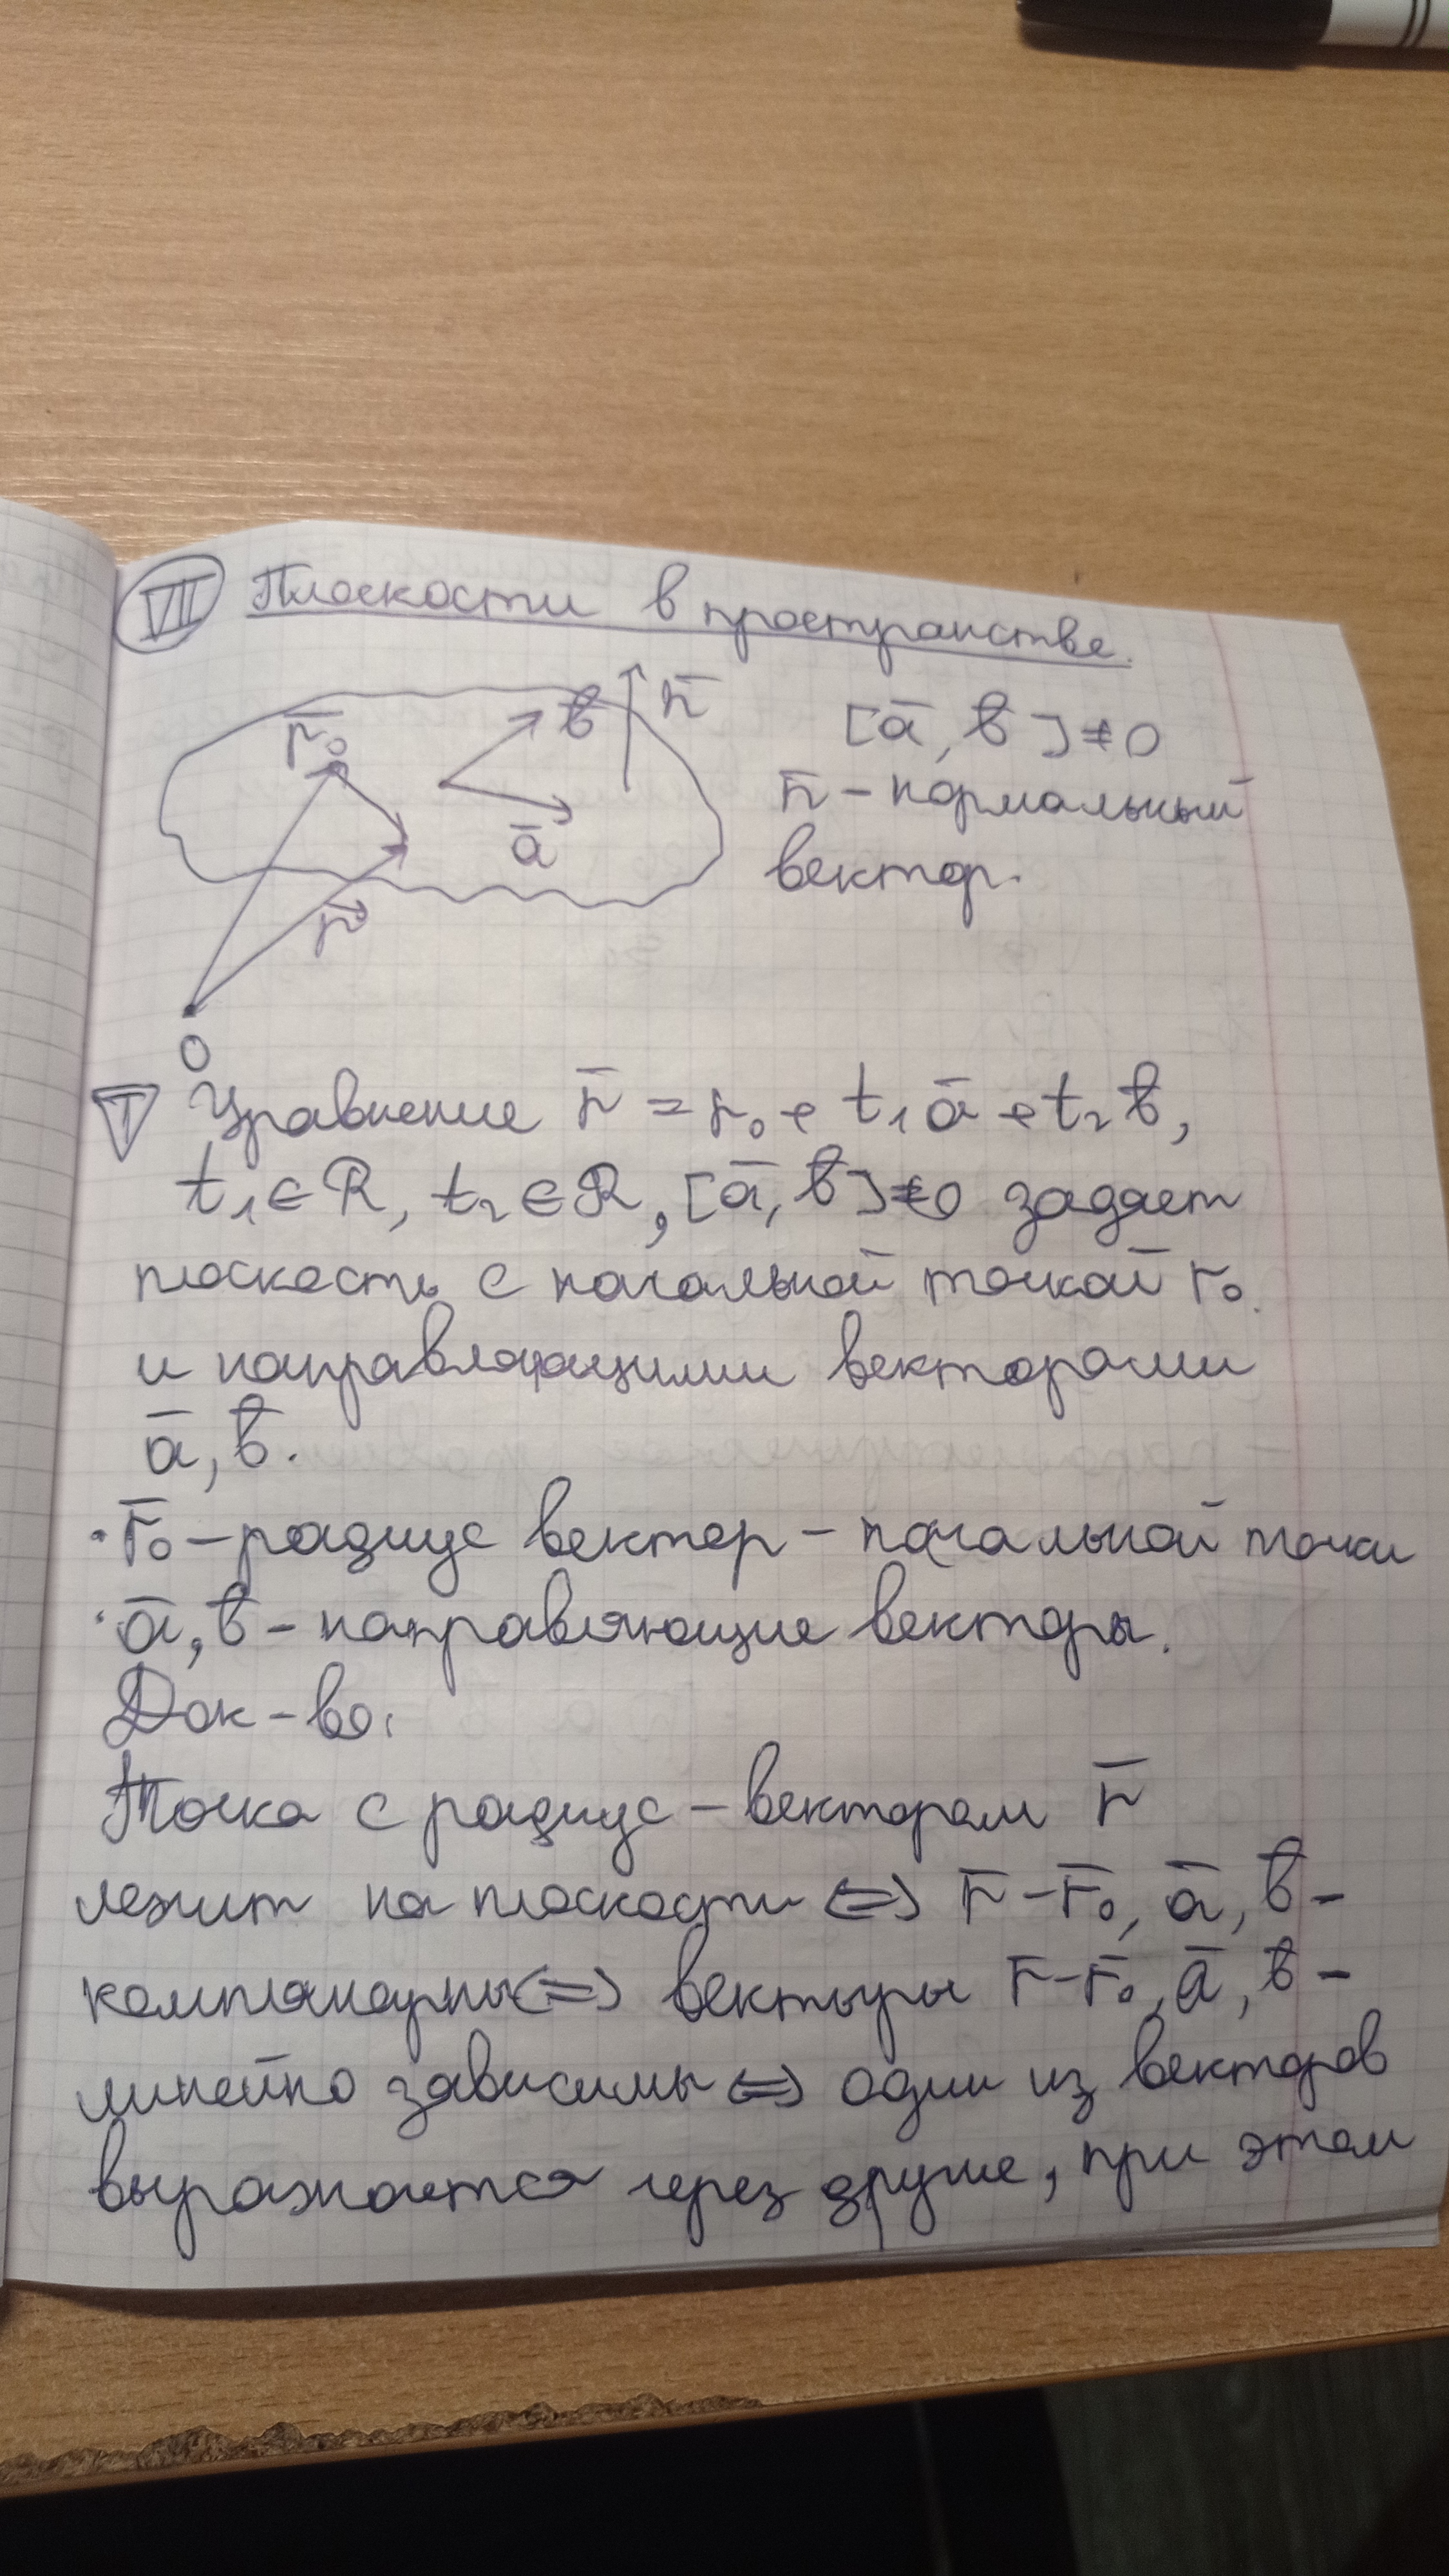 VII Плоскости в пространстве.
r̄₀ b̄ n̄ [ā, b̄] ≠ 0
n̄ – нормальный
ā вектор.
r̄
O
T Уравнение r̄ = r₀ + t₁ā + t₂b̄,
t₁ ∈ R, t₂ ∈ R, [ā, b̄] ≠ 0 задает
плоскость с начальной точкой r₀.
и направляющими векторами
ā, b̄.
· r̄₀ – радиус вектор – начальной точки
· ā, b̄ – направляющие векторы.
Док-во:
Точка с радиус-вектором r̄
лежит на плоскости <=> r̄ – r̄₀, ā, b̄ –
компланарны <=> векторы r̄ – r̄₀, ā, b̄ –
линейно зависимы <=> один из векторов
выражается через другие, при этом